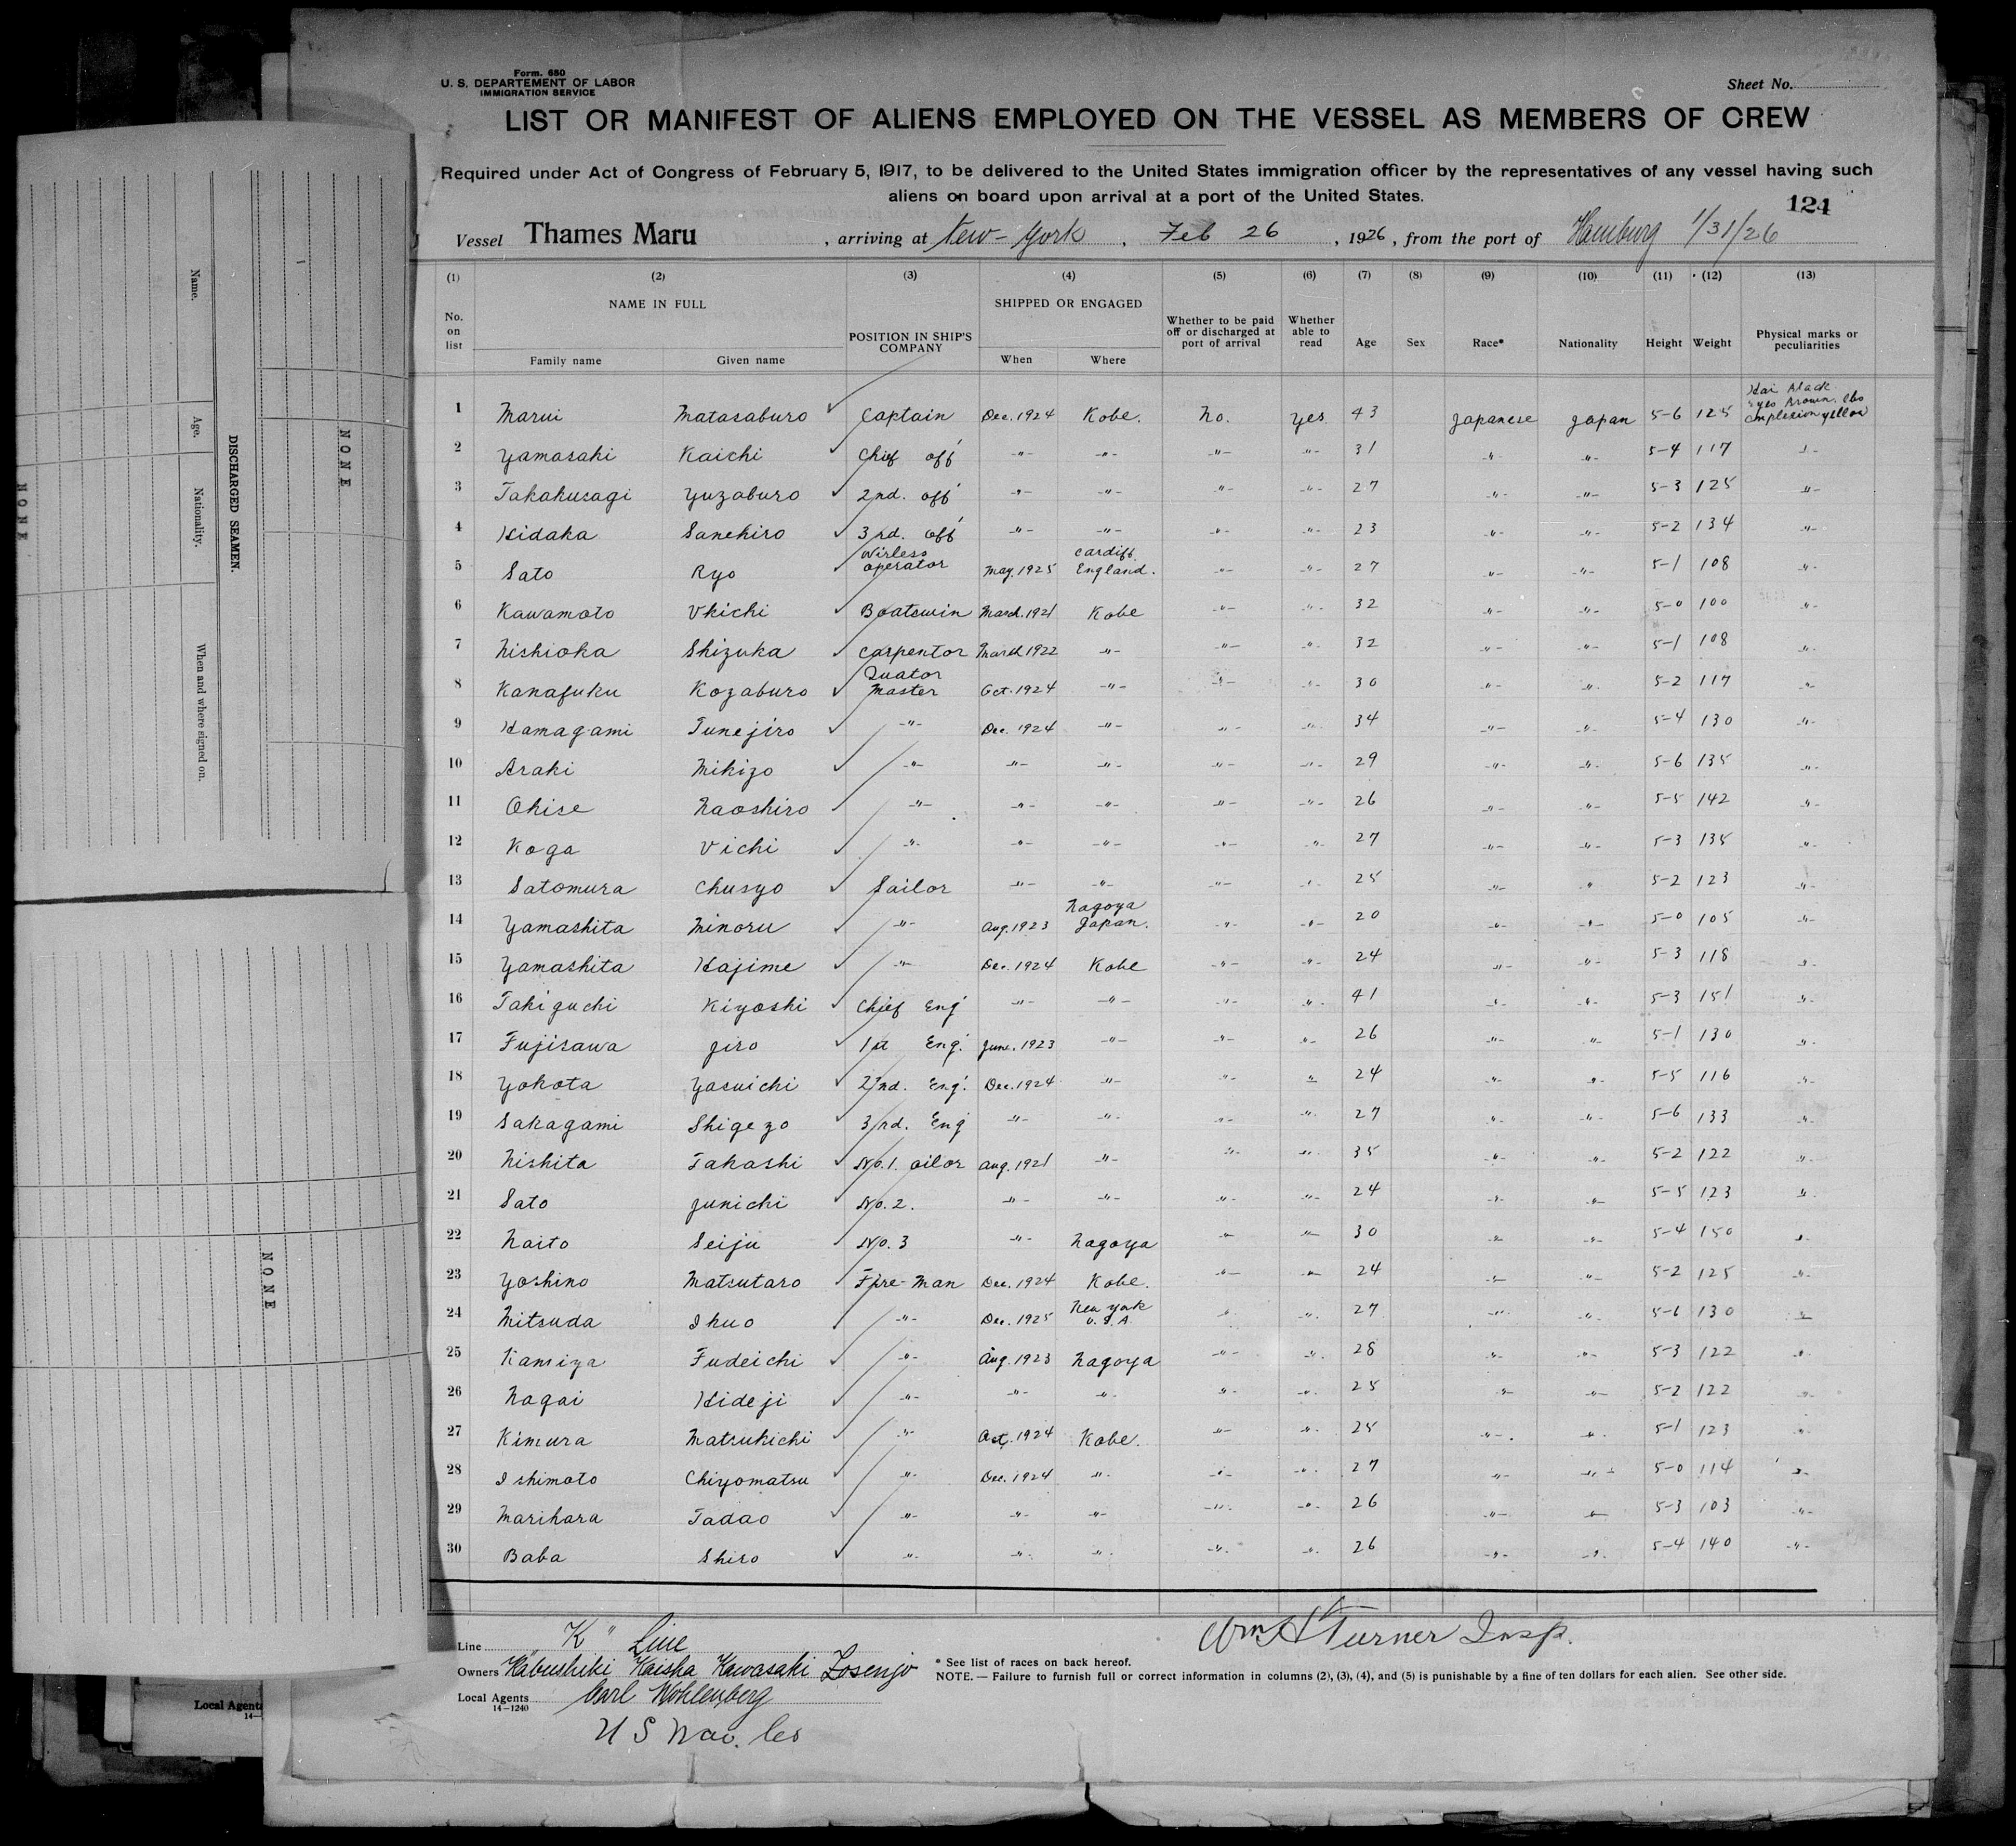 Form. 680
U. S. DEPARTEMENT OF LABOR
IMMIGRATION SERVICE
Sheet No.
LIST OR MANIFEST OF ALIENS EMPLOYED ON THE VESSEL AS MEMBERS OF CREW
Required under Act of Congress of February 5, 1917, to be delivered to the United States immigration officer by the representatives of any vessel having such
aliens on board upon arrival at a port of the United States.
124
Vessel Thames Maru, arriving at New-York, Feb 26, 1926, from the port of Hamburg 1/31/26
(1) (2) (3) (4) (5) (6) (7) (8) (9) (10) (11) (12) (13)
No. on list
NAME IN FULL
Family name Given name
POSITION IN SHIP'S COMPANY
SHIPPED OR ENGAGED
When Where
Whether to be paid off or discharged at port of arrival
Whether able to read
Age Sex Race* Nationality Height Weight
Physical marks or peculiarities
1 Marui Matasaburo Captain Dec. 1924 Kobe. No. Yes 43 Japanese Japan 5-6 125 Hai Black Eyes Brown
yellow
2 Yamasaki Kaichi Chief off -"- -"- -"- -"- 31 -"- -"- 5-4 117 -"-
3 Takakusagi Yuzaburo 2nd. off -"- -"- -"- -"- 27 -"- -"- 5-3 125 -"-
4 Hidaka Sanehiro 3rd. off -"- -"- -"- -"- 23 -"- -"- 5-2 134 -"-
5 Sato Ryo Wirless operator May. 1925 Cardiff England. -"- -"- 27 -"- -"- 5-1 108 -"-
6 Kawamoto Ukichi Boatswin March. 1921 Kobe -"- -"- 32 -"- -"- 5-0 100 -"-
7 Nishioka Shizuka Carpentor March 1922 -"- -"- -"- 32 -"- -"- 5-1 108 -"-
8 Kanafuku Kozaburo Quator Master Oct. 1924 -"- -"- -"- 30 -"- -"- 5-2 117 -"-
9 Hamagami Tunejiro -"- Dec. 1924 -"- -"- -"- 34 -"- -"- 5-4 130 -"-
10 Araki Mikizo -"- -"- -"- -"- -"- 29 -"- -"- 5-6 135 -"-
11 Okise Naoshiro -"- -"- -"- -"- -"- 26 -"- -"- 5-5 142 -"-
12 Koga Uichi -"- -"- -"- -"- -"- 27 -"- -"- 5-3 135 -"-
13 Satomura Chusyo Sailor -"- -"- -"- -"- 25 -"- -"- 5-2 123 -"-
14 Yamashita Minoru -"- Aug. 1923 Nagoya Japan. -"- -"- 20 -"- -"- 5-0 105 -"-
15 Yamashita Hajime -"- Dec. 1924 Kobe -"- -"- 24 -"- -"- 5-3 118 -"-
16 Takiguchi Kiyoshi Chief Eng -"- -"- -"- -"- 41 -"- -"- 5-3 151 -"-
17 Fujisawa Jiro 1st Eng. June. 1923 -"- -"- -"- 26 -"- -"- 5-1 130 -"-
18 Yokota Yasuichi 2nd. Eng. Dec. 1924 -"- -"- -"- 24 -"- -"- 5-5 116 -"-
19 Sakagami Shigezo 3rd. Eng -"- -"- -"- -"- 27 -"- -"- 5-6 133 -"-
20 Nishita Takashi No. 1. oilor Aug. 1921 -"- -"- -"- 35 -"- -"- 5-2 122 -"-
21 Sato Junichi No. 2. -"- -"- -"- -"- 24 -"- -"- 5-5 123 -"-
22 Naito Seiju No. 3 -"- Nagoya -"- -"- 30 -"- -"- 5-4 150 -"-
23 Yoshino Matsutaro Fire-Man Dec. 1924 Kobe. -"- -"- 24 -"- -"- 5-2 125 -"-
24 Mitsuda Ikuo -"- Dec. 1925 New York U.S.A. -"- -"- 27 -"- -"- 5-6 130 -"-
25 Kamiya Fudeichi -"- Aug. 1923 Nagoya -"- -"- 28 -"- -"- 5-3 122 -"-
26 Nagai Hideji -"- -"- -"- -"- -"- 25 -"- -"- 5-2 122 -"-
27 Kimura Matsukichi -"- Oct. 1924 Kobe. -"- -"- 25 -"- -"- 5-1 123 -"-
28 Ishimoto Chiyomatsu -"- Dec. 1924 -"- -"- -"- 27 -"- -"- 5-0 114 -"-
29 Marihara Tadao -"- -"- -"- -"- -"- 26 -"- -"- 5-3 103 -"-
30 Baba Shiro -"- -"- -"- -"- -"- 26 -"- -"- 5-4 140 -"-
Line K " Line
Wm H Turner Insp.
Owners Kabushiki Kaisha Kawasaki Zosenjo
* See list of races on back hereof.
NOTE. — Failure to furnish full or correct information in columns (2), (3), (4), and (5) is punishable by a fine of ten dollars for each alien. See other side.
Local Agents Carl Wohlenberg
14—1240
U S Nav. Co
Name.
Age.
Nationality.
When and where signed on.
DISCHARGED SEAMEN.
NONE
NONE
NONE
Local Agents